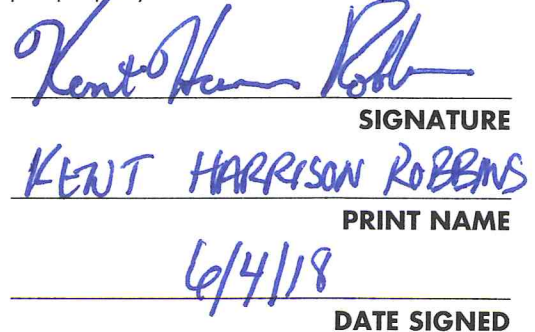 Kent Harrison Robbins
SIGNATURE
KENT HARRISON ROBBINS
PRINT NAME
6/4/18
DATE SIGNED